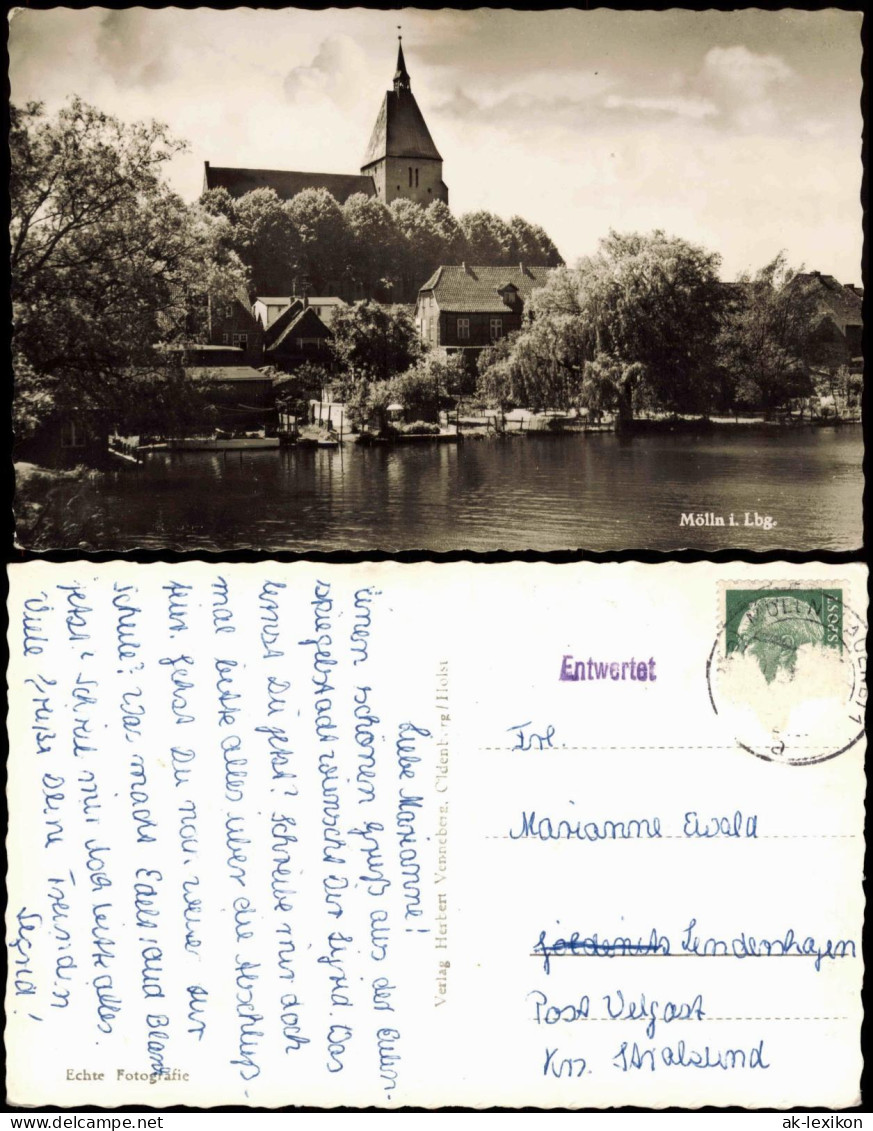 Mölln i. Lbg.
Liebe Marianne!
Einen schönen Gruß aus der Eulen-
spiegelstadt wünscht Dir Sigrid. Was
lernst Du jetzt? Schreibe mir doch
mal bitte alles über die Abschluß-
Gehst Du noch weiter zur
Schule? Was macht Edeltraud
jetzt? Schreib mir doch bitte alles.
Viele Grüße Deine Freundin
Sigrid!
Verlag Herbert Venneberg, Oldenburg/Holst
Echte Fotografie
Entwertet
MÖLLN
Frl.
Marianne Ewald
Lendershagen
Post Velgast
Krs. Stralsund
ak-lexikon